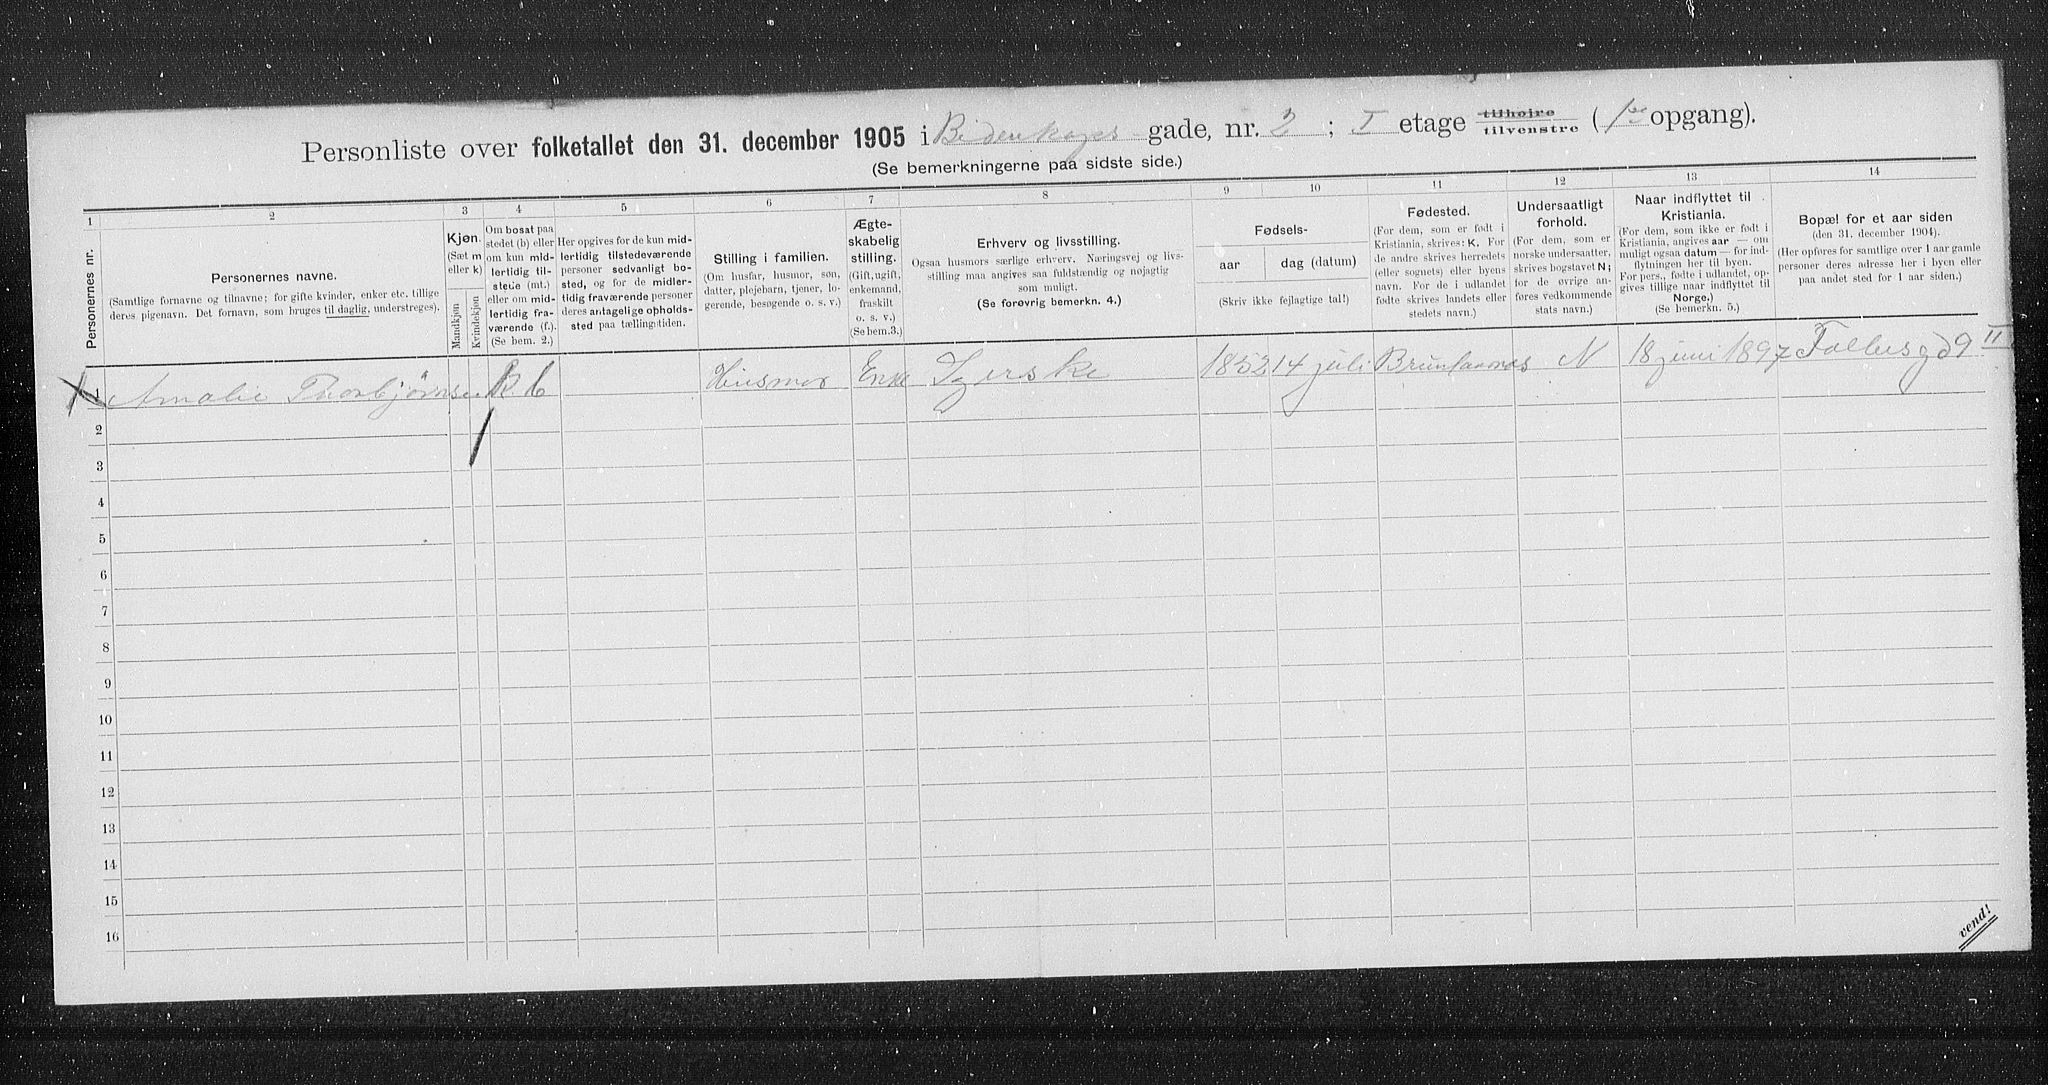 Personliste over folketallet den 31. december 1905 i Bidenkaps gade, nr. 2 ; I etage tilhøire tilvenstre ( 1ste opgang).
(Se bemerkningerne paa sidste side.)
1 2 3 4 5 6 7 8 9 10 11 12 13 14
Personernes nr.
Personernes navne.
(Samtlige fornavne og tilnavne; for gifte kvinder, enker etc. tillige
deres pigenavn. Det fornavn, som bruges til daglig, understreges).
Kjøn.
(Sæt m
eller k)
Mandkjøn
Kvindekjøn
Om bosat paa
stedet (b) eller
om kun mid-
lertidig til-
stede (mt.)
eller om mid-
lertidig fra-
værende (f.).
(Se bem. 2.)
Her opgives for de kun mid-
lertidig tilstedeværende
personer sedvanligt bo-
sted, og for de midler-
tidig fraværende personer
deres antagelige opholds-
sted paa tællingstiden.
Stilling i familien.
(Om husfar, husmor, søn,
datter, plejebarn, tjener, lo-
gerende, besøgende o. s. v.)
Ægte-
skabelig
stilling.
(Gift, ugift,
enkemand,
fraskilt
o. s. v.)
(Se bem.3.)
Erhverv og livsstilling.
Ogsaa husmors særlige erhverv. Næringsvej og livs-
stilling maa angives saa fuldstændig og nøjagtig
som muligt.
(Se forøvrig bemerkn. 4.)
Fødsels-
aar dag (datum)
(Skriv ikke fejlagtige tal!)
Fødested.
(For dem, som er født i
Kristiania, skrives: K. For
de andre skrives herredets
(eller sognets) eller byens
navn. For de i udlandet
fødte skrives landets eller
stedets navn.)
Undersaatligt
forhold.
(For dem, som er
norske undersaatter,
skrives bogstavet N;
for de øvrige an-
føres vedkommende
stats navn.)
Naar indflyttet til
Kristiania.
(For dem, som ikke er født i
Kristiania, angives aar — om
muligt ogsaa datum — for ind-
flytningen her til byen.
For pers., fødte i udlandet, op-
gives tillige naar indflyttet til
Norge.)
(Se bemerkn. 5.)
Bopæl for et aar siden
(den 31. december 1904).
(Her opføres for samtlige over 1 aar gamle
personer deres adresse her i byen eller
paa andet sted for 1 aar siden.)
1 Amalie Thorbjørnsen k b Husmor Enke Syerske 1852 14 juli Brunlannes N 18 juni 1897 Falbesgd 9 II
2
3
4
5
6
7
8
9
10
11
12
13
14
15
16
vend!